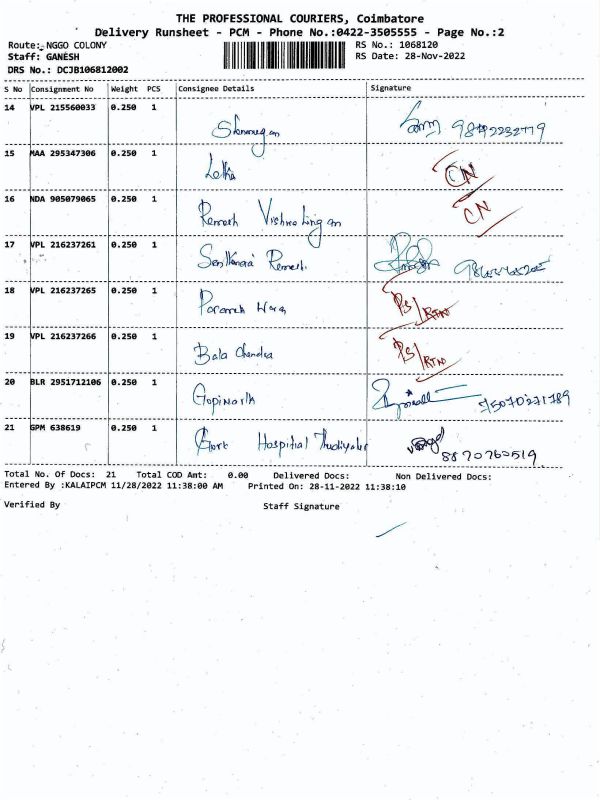 THE PROFESSIONAL COURIERS, Coimbatore
Delivery Runsheet - PCM - Phone No.:0422-3505555 - Page No.:2
Route: NGGO COLONY RS No.: 1068120
Staff: GANESH RS Date: 28-Nov-2022
DRS No.: DCJB106812002
S No Consignment No Weight PCS Consignee Details Signature
14 VPL 215560033 0.250 1 Shanmugan
15 MAA 295347306 0.250 1 CN
16 NDA 905079065 0.250 1 Remesh CN
17 VPL 216237261 0.250 1
18 VPL 216237265 0.250 1 PS/RTN
19 VPL 216237266 0.250 1 Bala Chandra PS/RTN
20 BLR 2951712106 0.250 1 Gopinath
21 GPM 638619 0.250 1 Hospitial 8870760519
Total No. Of Docs: 21 Total COD Amt: 0.00 Delivered Docs: Non Delivered Docs:
Entered By :KALAIPCM 11/28/2022 11:38:00 AM Printed On: 28-11-2022 11:38:10
Verified By Staff Signature